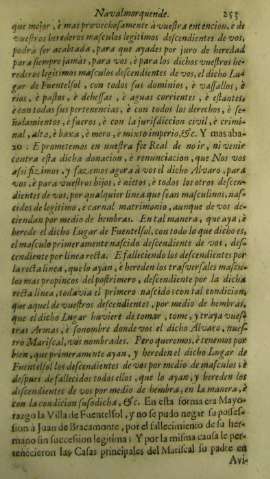 Navalmorquende. 253
que mejor, è mas provechosamente à vuestra entencion, è de
vuestros herederos masculos legitimos descendientes de vos,
podrà ser acabtada, para que ayades por juro de heredad
para siempre jamàs, para vos, è para los dichos vuestros he-
rederos legitimos masculos descendientes de vos, el dicho Lu-
gar de Fuentelsol, con todos sus dominios, è vassallos, è
rios, è pastos, è dehessas, è aguas corrientes, è estantes,
è con todas sus pertenencias, è con todos los derechos, è se-
ñalamientos, è fueros, è con la jurisdiccion civil, è crimi-
nal, alto, è baxa, è mero, è mixto imperio, &c. Y mas aba-
xo: E prometemos en nuestra fee Real de no ir, ni venir
contra esta dicha donacion, è renunciacion, que Nos vos
assi fizimos, y fazemos agora à vos el dicho Alvaro, para
vos, è para vuestros hijos, è nietos, è todos los otros descen-
dientes de vos, por qualquier linea que sean masculinos, na-
cidos de legitimo, è carnal matrimonio, aunque de vos de-
ciendan por medio de hembras. En tal manera, que aya, è
herede el dicho Lugar de Fuentelsol, con todo lo que dicho es,
el masculo primeramente nascido descendiente de vos, des-
cendiente por linea recta. E falleciendo los descendientes por
la recta linea, que lo ayan, è hereden los trasversales mascu-
los mas propincos del postrimero, descendiente por la dicha
recta linea, todavia el primero nascido: con tal condicion,
que aquel de vuestros descendientes, por medio de hembras,
que el dicho Lugar huviere de tomar, tome, y traya vues-
tras Armas, è sonombre donde vos el dicho Alvaro, nues-
tro Mariscal, vos nombrades. Pero queremos, è tenemos por
bien, que primeramente ayan, y hereden el dicho Lugar de
Fuentelsol los descendientes de vos por medio de masculos: è
despues de fallecidos todos ellos, que lo ayan, y hereden los
descendientes de vos por medio de hembra, en la manera, è
con la condicion susodicha, &c. En esta forma era Mayo-
razgo la Villa de Fuentelsol, y no se pudo negar su posses-
sion à Juan de Bracamonte, por el fallecimiento de su her-
mano sin succession legitima: Y por la misma causa le per-
tenecieron las Casas principales del Mariscal su padre en
Avi-